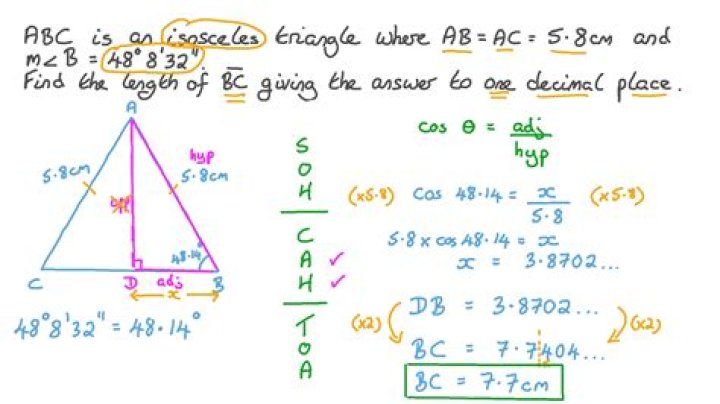 ABC is an isosceles triangle where AB = AC = 5.8cm and
m∠B = 48° 8' 32".
Find the length of BC giving the answer to one decimal place.
A
hyp
5.8cm
5.8cm
48.14°
C
D
adj
B
x
48°8'32" = 48.14°
S
O
H
C
A ✓
H ✓
T
O
A
cos θ = adj
hyp
(×5.8) cos 48.14 = x (×5.8)
5.8
5.8 × cos 48.14 = x
x = 3.8702...
DB = 3.8702...
(×2) (×2)
BC = 7.7404...
BC = 7.7cm